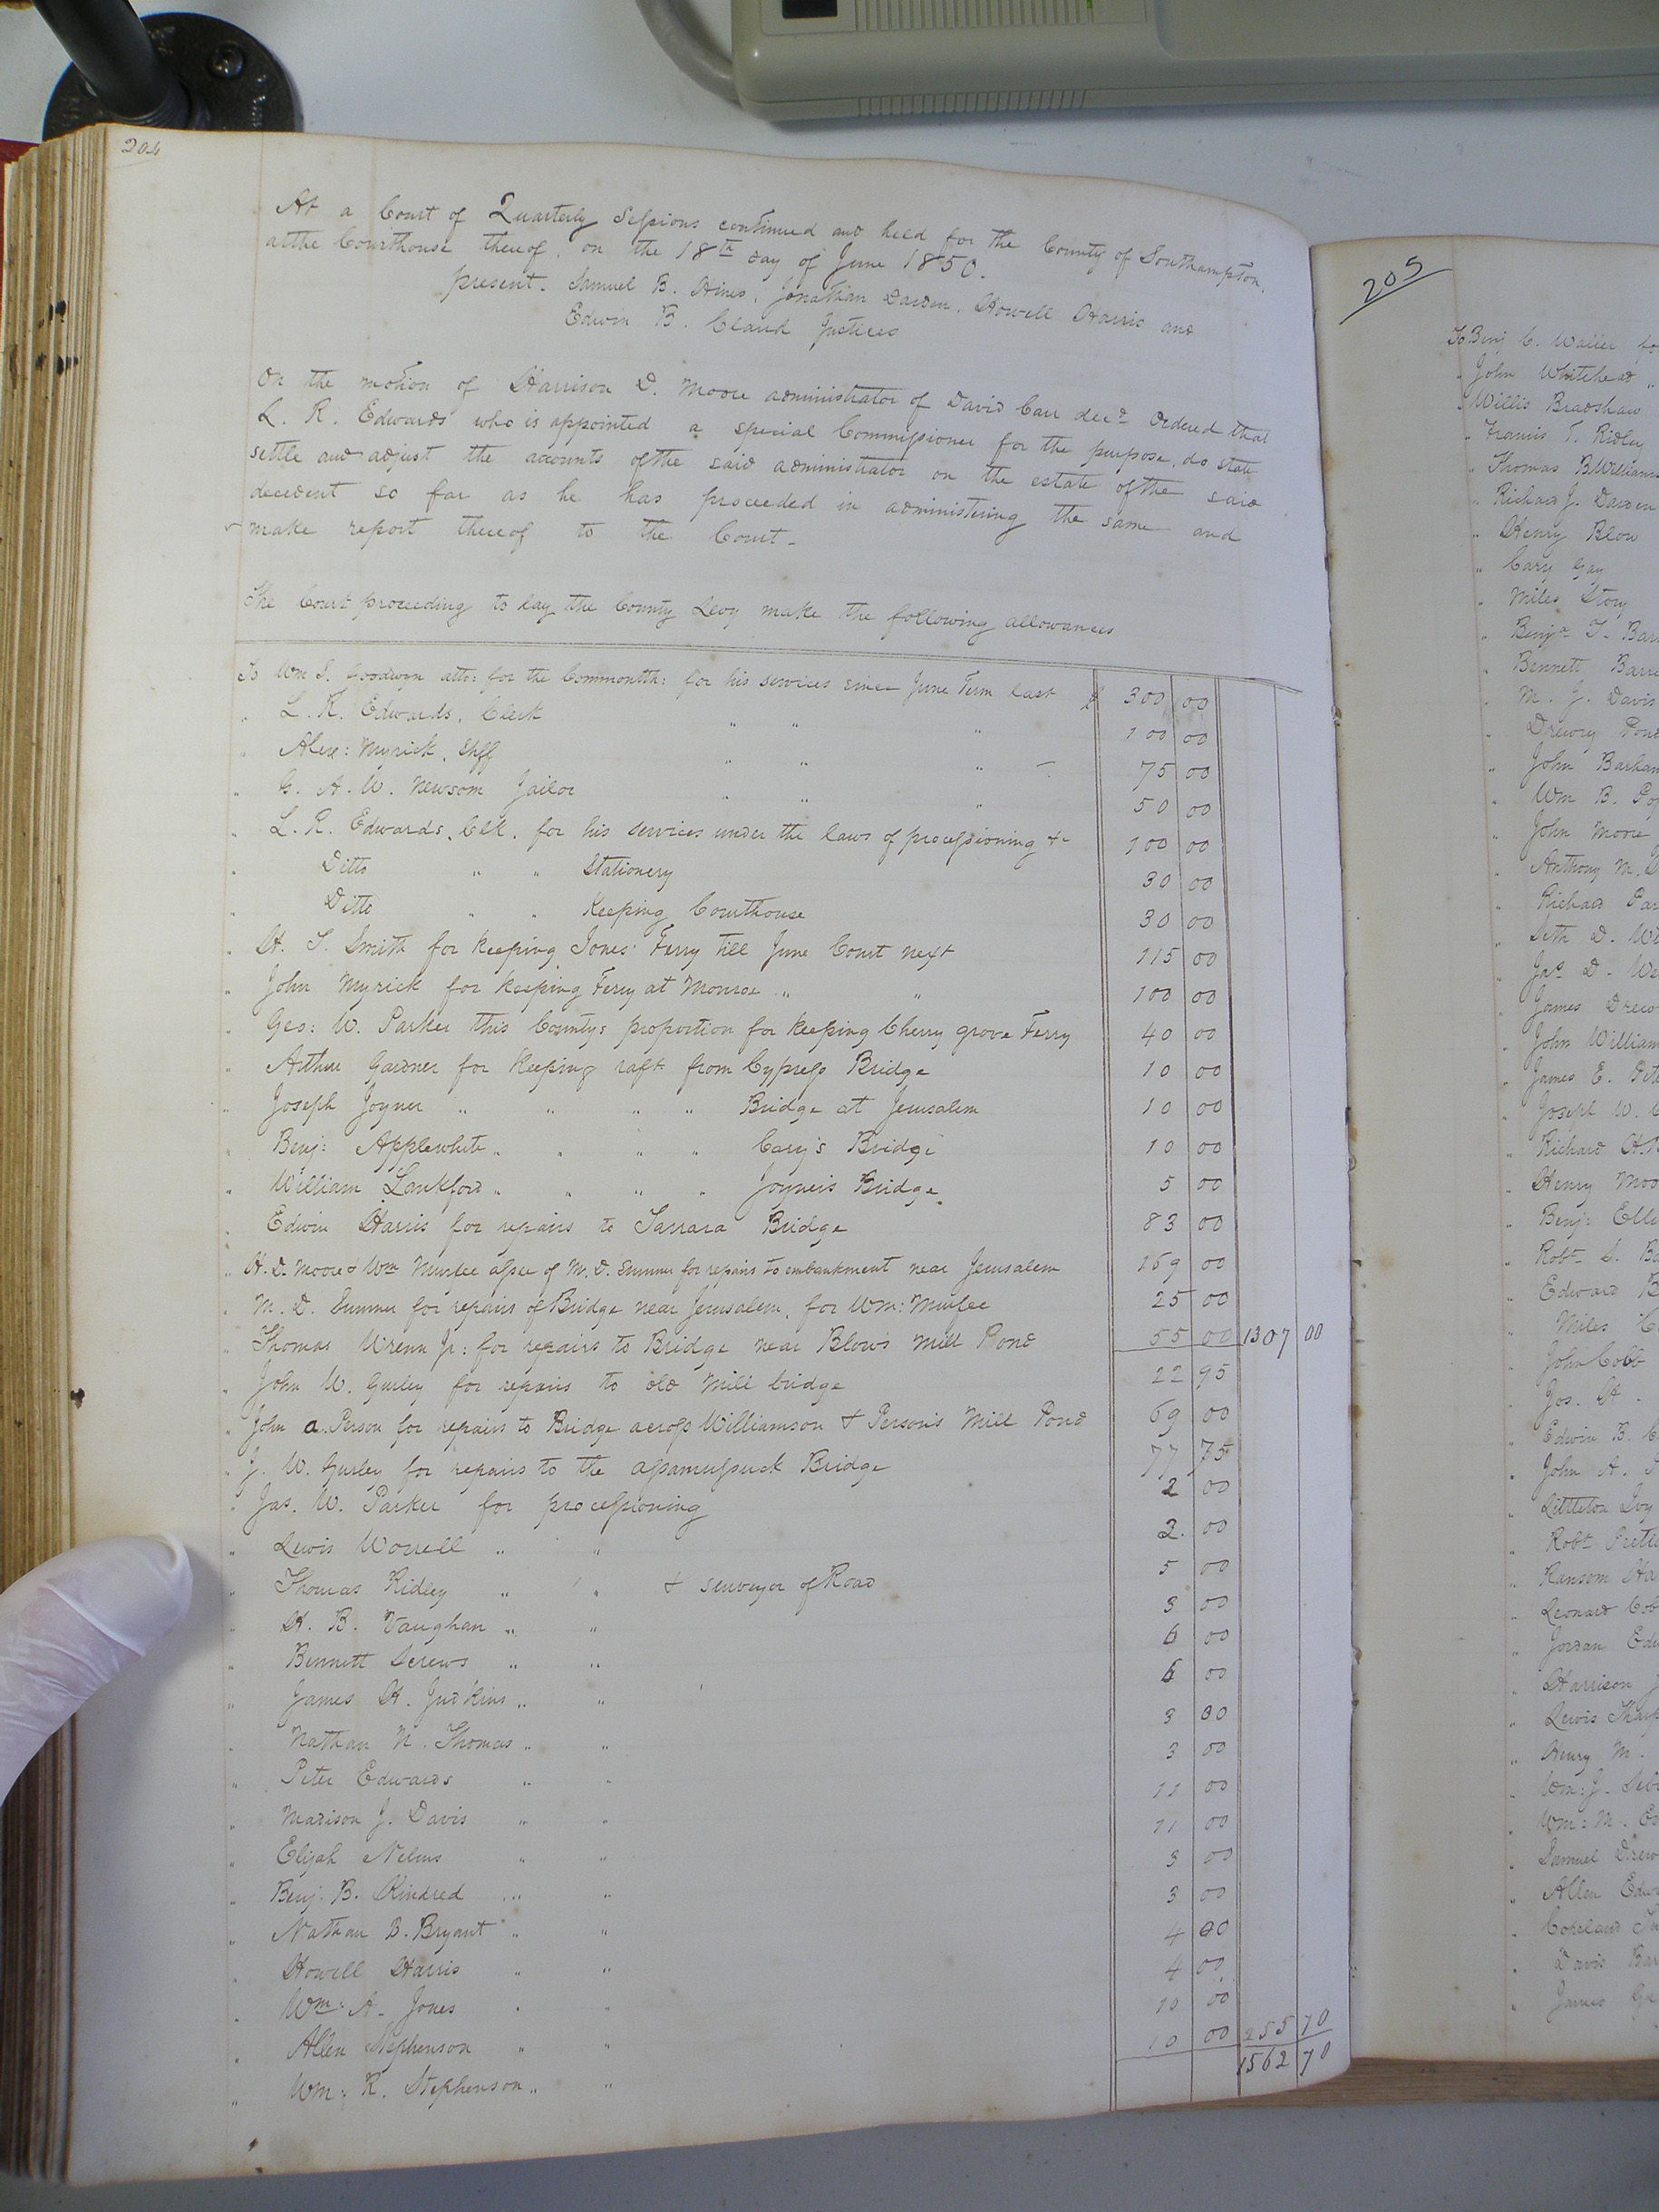 204
At a Court of Quarterly Sessions continued and held for the County of Southampton,
at the Courthouse thereof, on the 18th day of June 1850.
present. Samuel B. Hines, Jonathan Darden, Howell Harris and
Edwin B. Claud Justices
On the motion of Harrison D. Moore administrator of David Carr decd. Ordered that
L. R. Edwards who is appointed a special Commissioner for the purpose, do state
settle and adjust the accounts of the said administrator on the estate of the said
decedent so far as he has proceeded in administering the same and
make report thereof to the Court.
The Court proceeding to lay the County Levy make the following allowances
To Wm S. Goodwyn atto: for the Commonlth: for his services since June Term last $ 300 00
" L. R. Edwards, Clerk " " " 100 00
" Alex: Myrick, Shff " " " 75 00
" G. A. W. Newsom Jailor " " " 50 00
" L. R. Edwards, Clk. for his services under the laws of processioning &c 100 00
" Ditto " " Stationery 30 00
" Ditto " " Keeping Courthouse 30 00
" H. T. Smith for keeping Jones' Ferry till June Court next 115 00
" John Myrick for keeping Ferry at Monroe " " 100 00
" Geo: W. Parker this County's proportion for keeping Cherry grove Ferry 40 00
" Arthur Gardner for keeping raft from Cypress Bridge 10 00
" Joseph Joyner " " " " Bridge at Jerusalem 10 00
" Benj: Applewhite " " " " Cary's Bridge 10 00
" William Lankford " " " " Joyner's Bridge 5 00
" Edwin Harris for repairs to Tarrara Bridge 83 00
" H. D. Moore & Wm Murfee assee of M. D. Sumner for repairs to embankment near Jerusalem 169 00
" M. D. Sumner for repairs of Bridge near Jerusalem, for Wm: Murfee 25 00
" Thomas Wrenn Jr: for repairs to Bridge near Blow's Mill Pond 55 00 1307 00
" John W. Gurley for repairs to old Mill bridge 22 95
" John A. Person for repairs to Bridge across Williamson & Person's Mill Pond 69 00
" J. W. Gurley for repairs to the Assamussuck Bridge 77 75
" Jas. W. Parker for processioning 2 00
" Lewis Worrell " " 2 00
" Thomas Ridley " " & surveyor of Road 5 00
" H. B. Vaughan " " 3 00
" Bennett Screws " " 6 00
" James H. Judkins " " 6 00
" Nathan N. Thomas " " 3 00
" Peter Edwards " " 3 00
" Madison J. Davis " " 11 00
" Elijah Nelms " " 11 00
" Benj. B. Kindred " " 3 00
" Nathan B. Bryant " " 3 00
" Howell Harris " " 4 00
" Wm: A. Jones " " 4 00
" Allen Stephenson " " 10 00
" Wm: R. Stephenson " " 10 00 255 70
1562 70
205
To Benj C. Waller
" John Whitehead "
" Willis Bradshaw
" Francis T. Ridley
" Thomas B. Williams
" Richard J. Darden
" Henry Blow
" Cary Gay
" Miles Story
" Benja T.
" Bennett
" M. J. Davis
" Drewry
" John Barham
" Wm B.
" John Moore
" Anthony M.
" Richard
" Seth D.
" Jas D.
" James
" John
" James E.
" Joseph W.
" Richard H.
" Henry
" Benj:
" Robt S.
" Edward
" Miles
" John Cobb
" Jos. H.
" Edwin B.
" John A.
" Littleton
" Robt
" Ransom
" Leonard
" Jordan
" Harrison
" Lewis
" Henry M.
" Wm: J.
" Wm: M.
" Samuel
" Allen
" Copeland
" Davis
" James